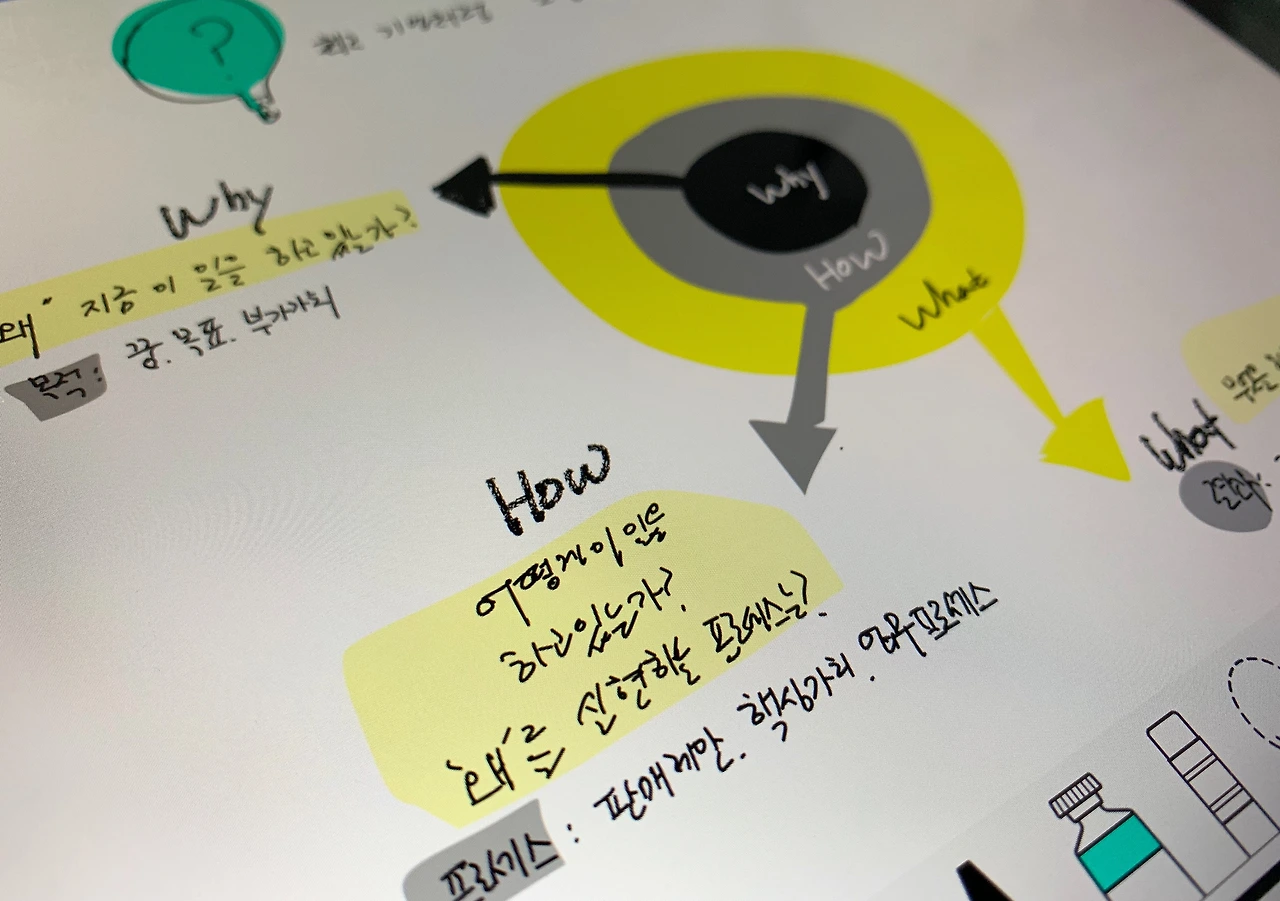 ?
Why
How
What
Why
"왜" 지금 이 일을 하고 있는가?
목적: 꿈. 목표. 부가가치
How
어떻게 이 일을
하고 있는가?
'왜'를 실현할 프로세스는?
프로세스: 판매제안. 핵심가치. 업무프로세스
What